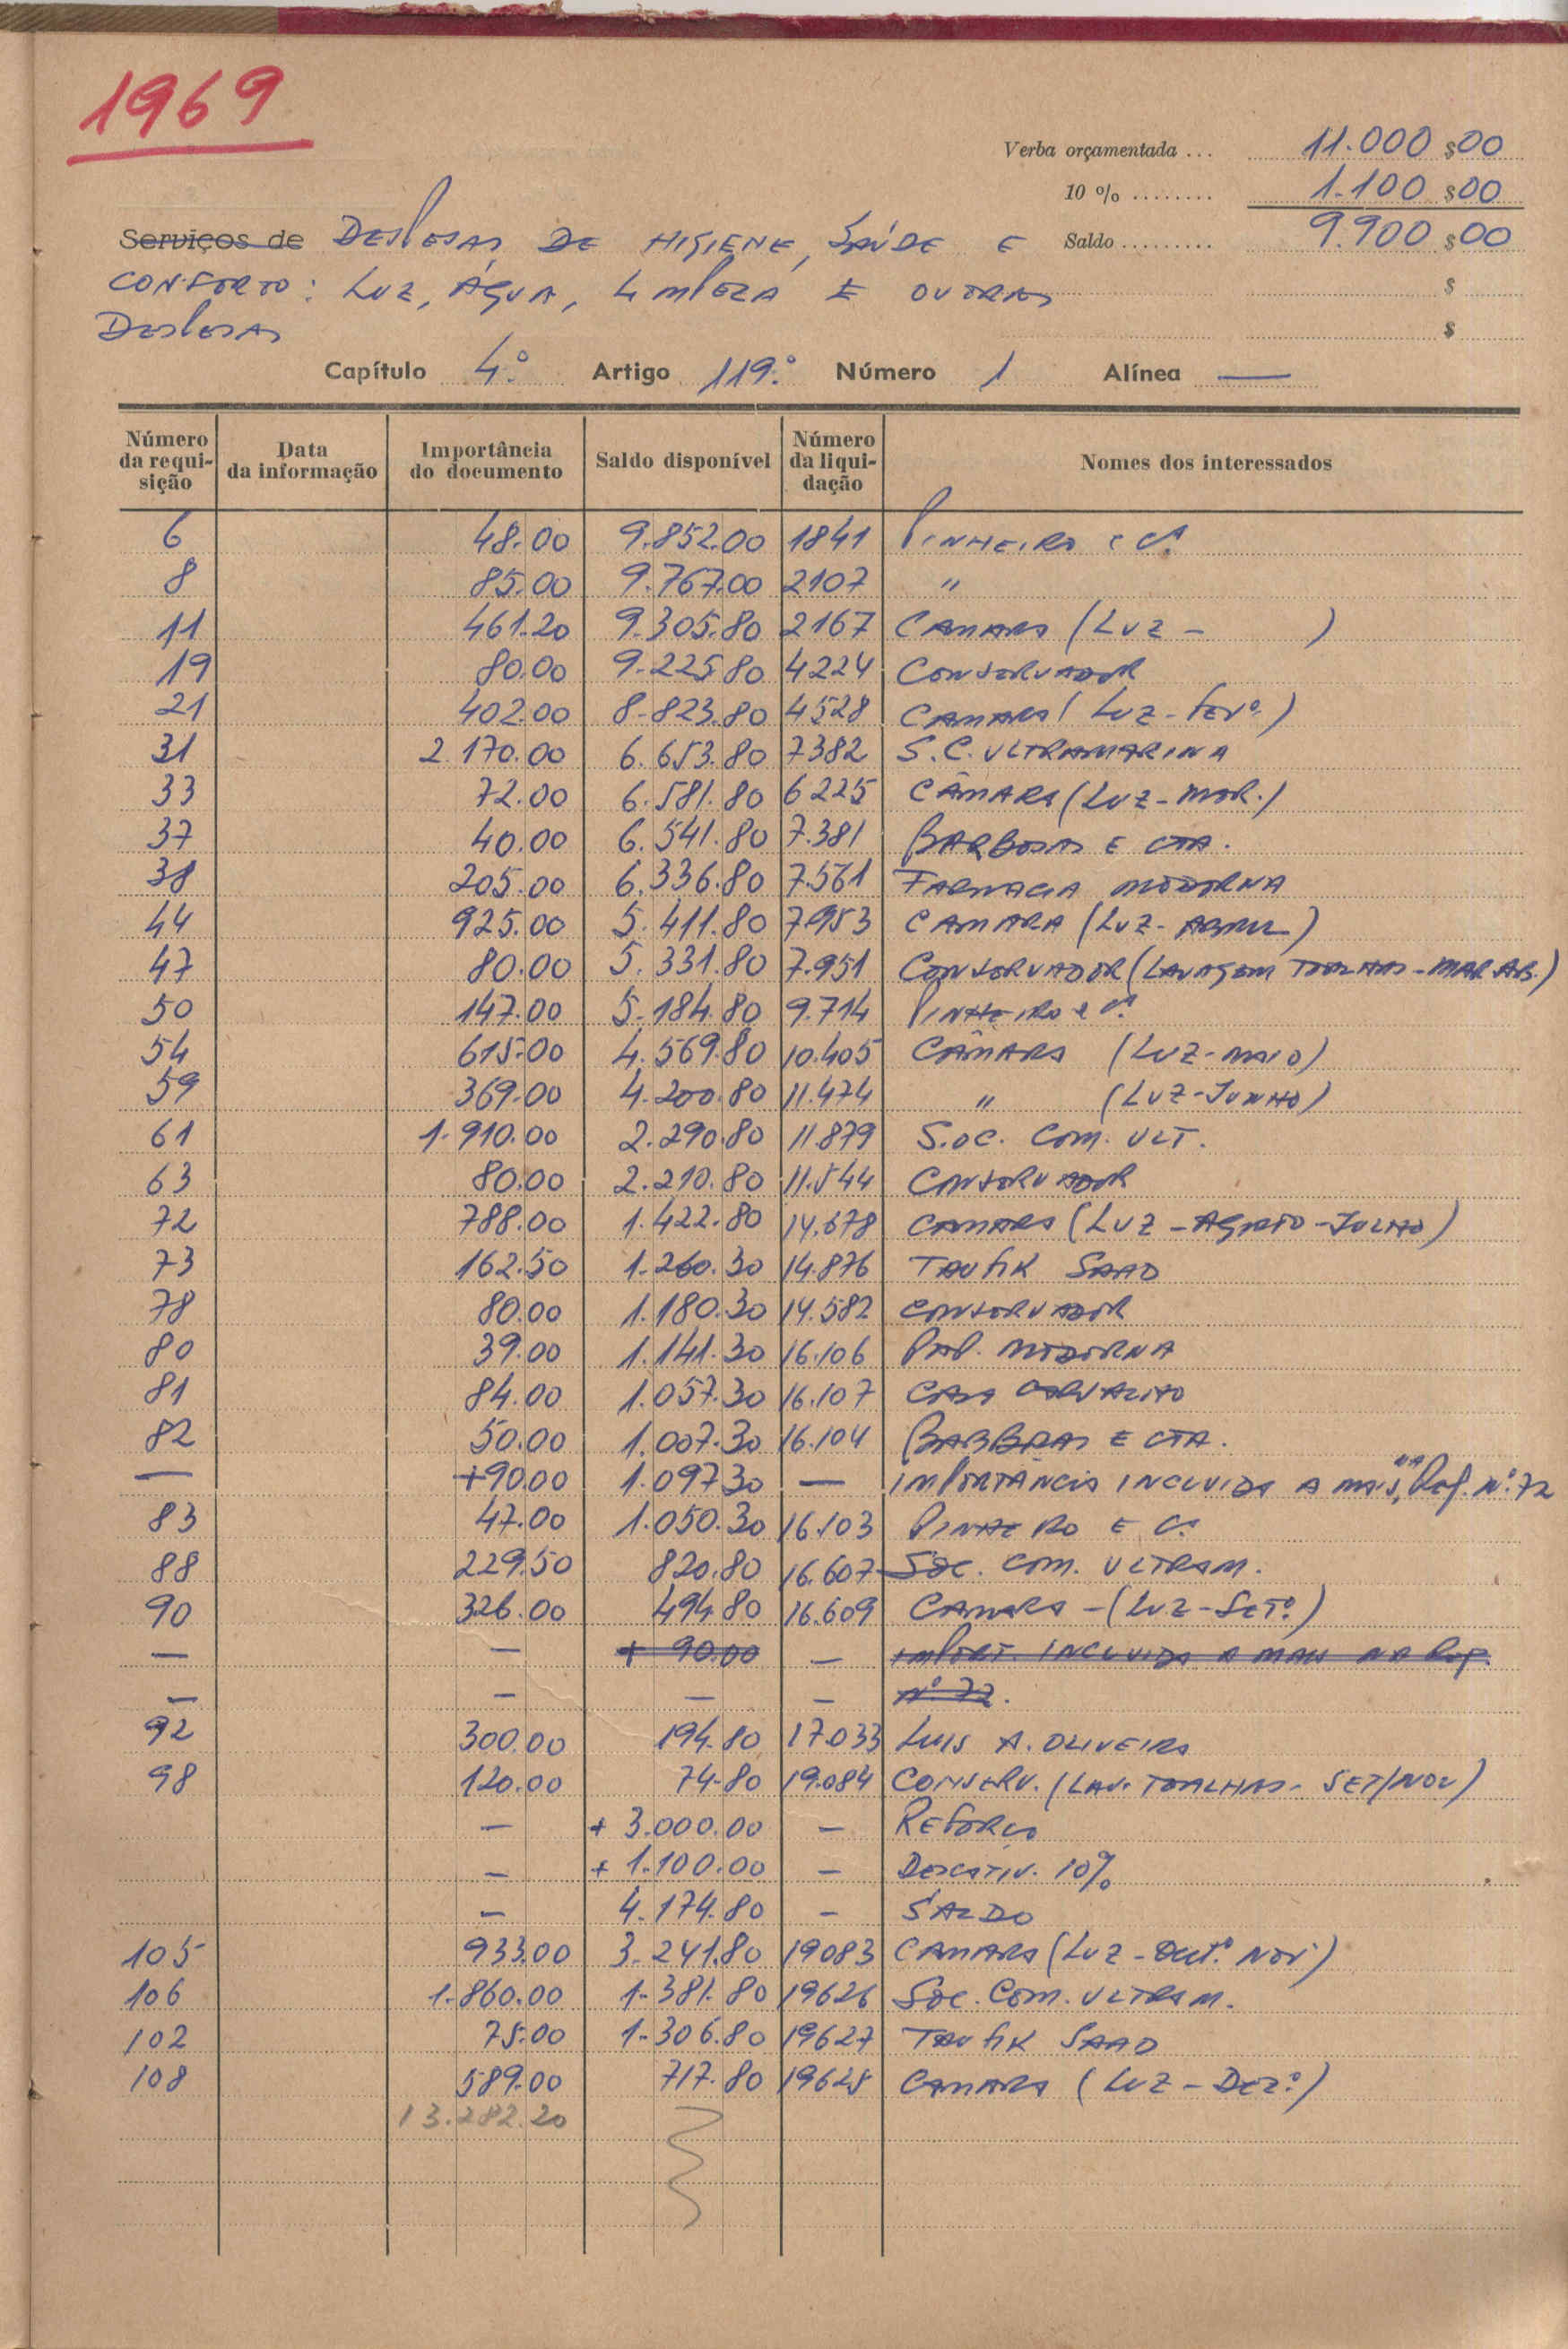 1969
Verba orçamentada ... 11.000 $ 00
10 % ........ 1.100 $ 00
Serviços de DESPESAS DE HIGIENE, SAÚDE E Saldo ......... 9.900 $ 00
CONFORTO: LUZ, ÁGUA, LIMPEZA E OUTRAS $
DESPESAS $
Capítulo 4.º Artigo 119.º Número 1 Alínea —
Número da requi-sição Data da informação Importância do documento Saldo disponível Número da liqui-dação Nomes dos interessados
6 48.00 9.852.00 1841 PINHEIRO E Cª
8 85.00 9.767.00 2107 "
11 461.20 9.305.80 2167 CAMARA (LUZ - )
19 80.00 9.225.80 4224 CONSERVADOR
21 402.00 8.823.80 4528 CAMARA (LUZ-FEVº.)
31 2.170.00 6.653.80 7382 S.C. ULTRAMARINA
33 72.00 6.581.80 6225 CÂMARA (LUZ-MAR.)
37 40.00 6.541.80 7.381 BARBOSAS E CTA.
38 205.00 6.336.80 7.561 FARMACIA MODERNA
44 925.00 5.411.80 7.953 CAMARA (LUZ-ABRIL)
47 80.00 5.331.80 7.951 CONSERVADOR (LAVAGEM TOALHAS-MAR.AB.)
50 147.00 5.184.80 9.714 PINHEIRO E Cª
54 615.00 4.569.80 10.405 CÂMARA (LUZ-MAIO)
59 369.00 4.200.80 11.474 " (LUZ-JUNHO)
61 1.910.00 2.290.80 11.879 SOC. COM. ULT.
63 80.00 2.210.80 11.544 CONSERVADOR
72 788.00 1.422.80 14.678 CAMARA (LUZ-AGOSTO-JULHO)
73 162.50 1.260.30 14.876 TAUFIK SAAD
78 80.00 1.180.30 14.582 CONSERVADOR
80 39.00 1.141.30 16.106 PAP. MODERNA
81 84.00 1.057.30 16.107 CASA CARVALHO
82 50.00 1.007.30 16.104 BARBOSAS E CTA.
— +90.00 1.097.30 — IMPORTÂNCIA INCLUIDA A MAIS, na Req. Nº. 72
83 47.00 1.050.30 16.103 PINHEIRO E Cª
88 229.50 820.80 16.607 SOC. COM. ULTRAM.
90 326.00 494.80 16.609 CAMARA - (LUZ-SETº.)
— — + 90.00 — IMPORT. INCLUIDA A MAIS NA Req.
— — — — Nº 72.
92 300.00 194.80 17.033 LUIS A. OLIVEIRA
98 120.00 74.80 19.084 CONSERV. (LAV. TOALHAS- SET/NOV)
— + 3.000.00 — REFORÇO
— + 1.100.00 — DESCATIV. 10%
— 4.174.80 — SALDO
105 933.00 3.241.80 19083 CAMARA (LUZ-OUTº. NOV)
106 1.860.00 1.381.80 19626 SOC. COM. ULTRAM.
102 75.00 1.306.80 19627 TAUFIK SAAD
108 589.00 717.80 19628 CAMARA (LUZ-DEZº.)
13.282.20